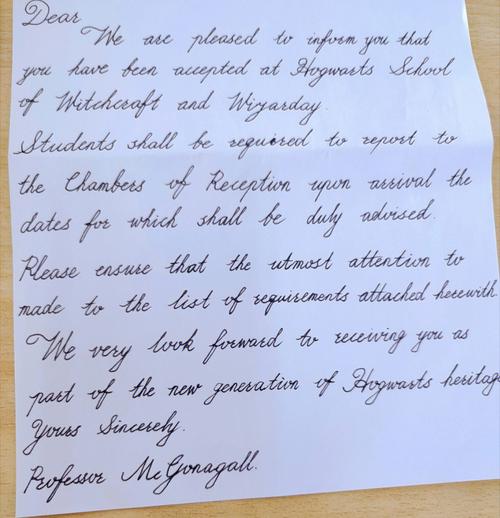 Dear
We are pleased to inform you that
you have been accepted at Hogwarts School
of Witchcraft and Wizarday.
Students shall be required to report to
the Chambers of Reception upon arrival the
dates for which shall be duly advised.
Please ensure that the utmost attention to
made to the list of requirements attached herewith
We very look forward to receiving you as
part of the new generation of Hogwarts heritage
Yours Sincerely.
Professor McGonagall.